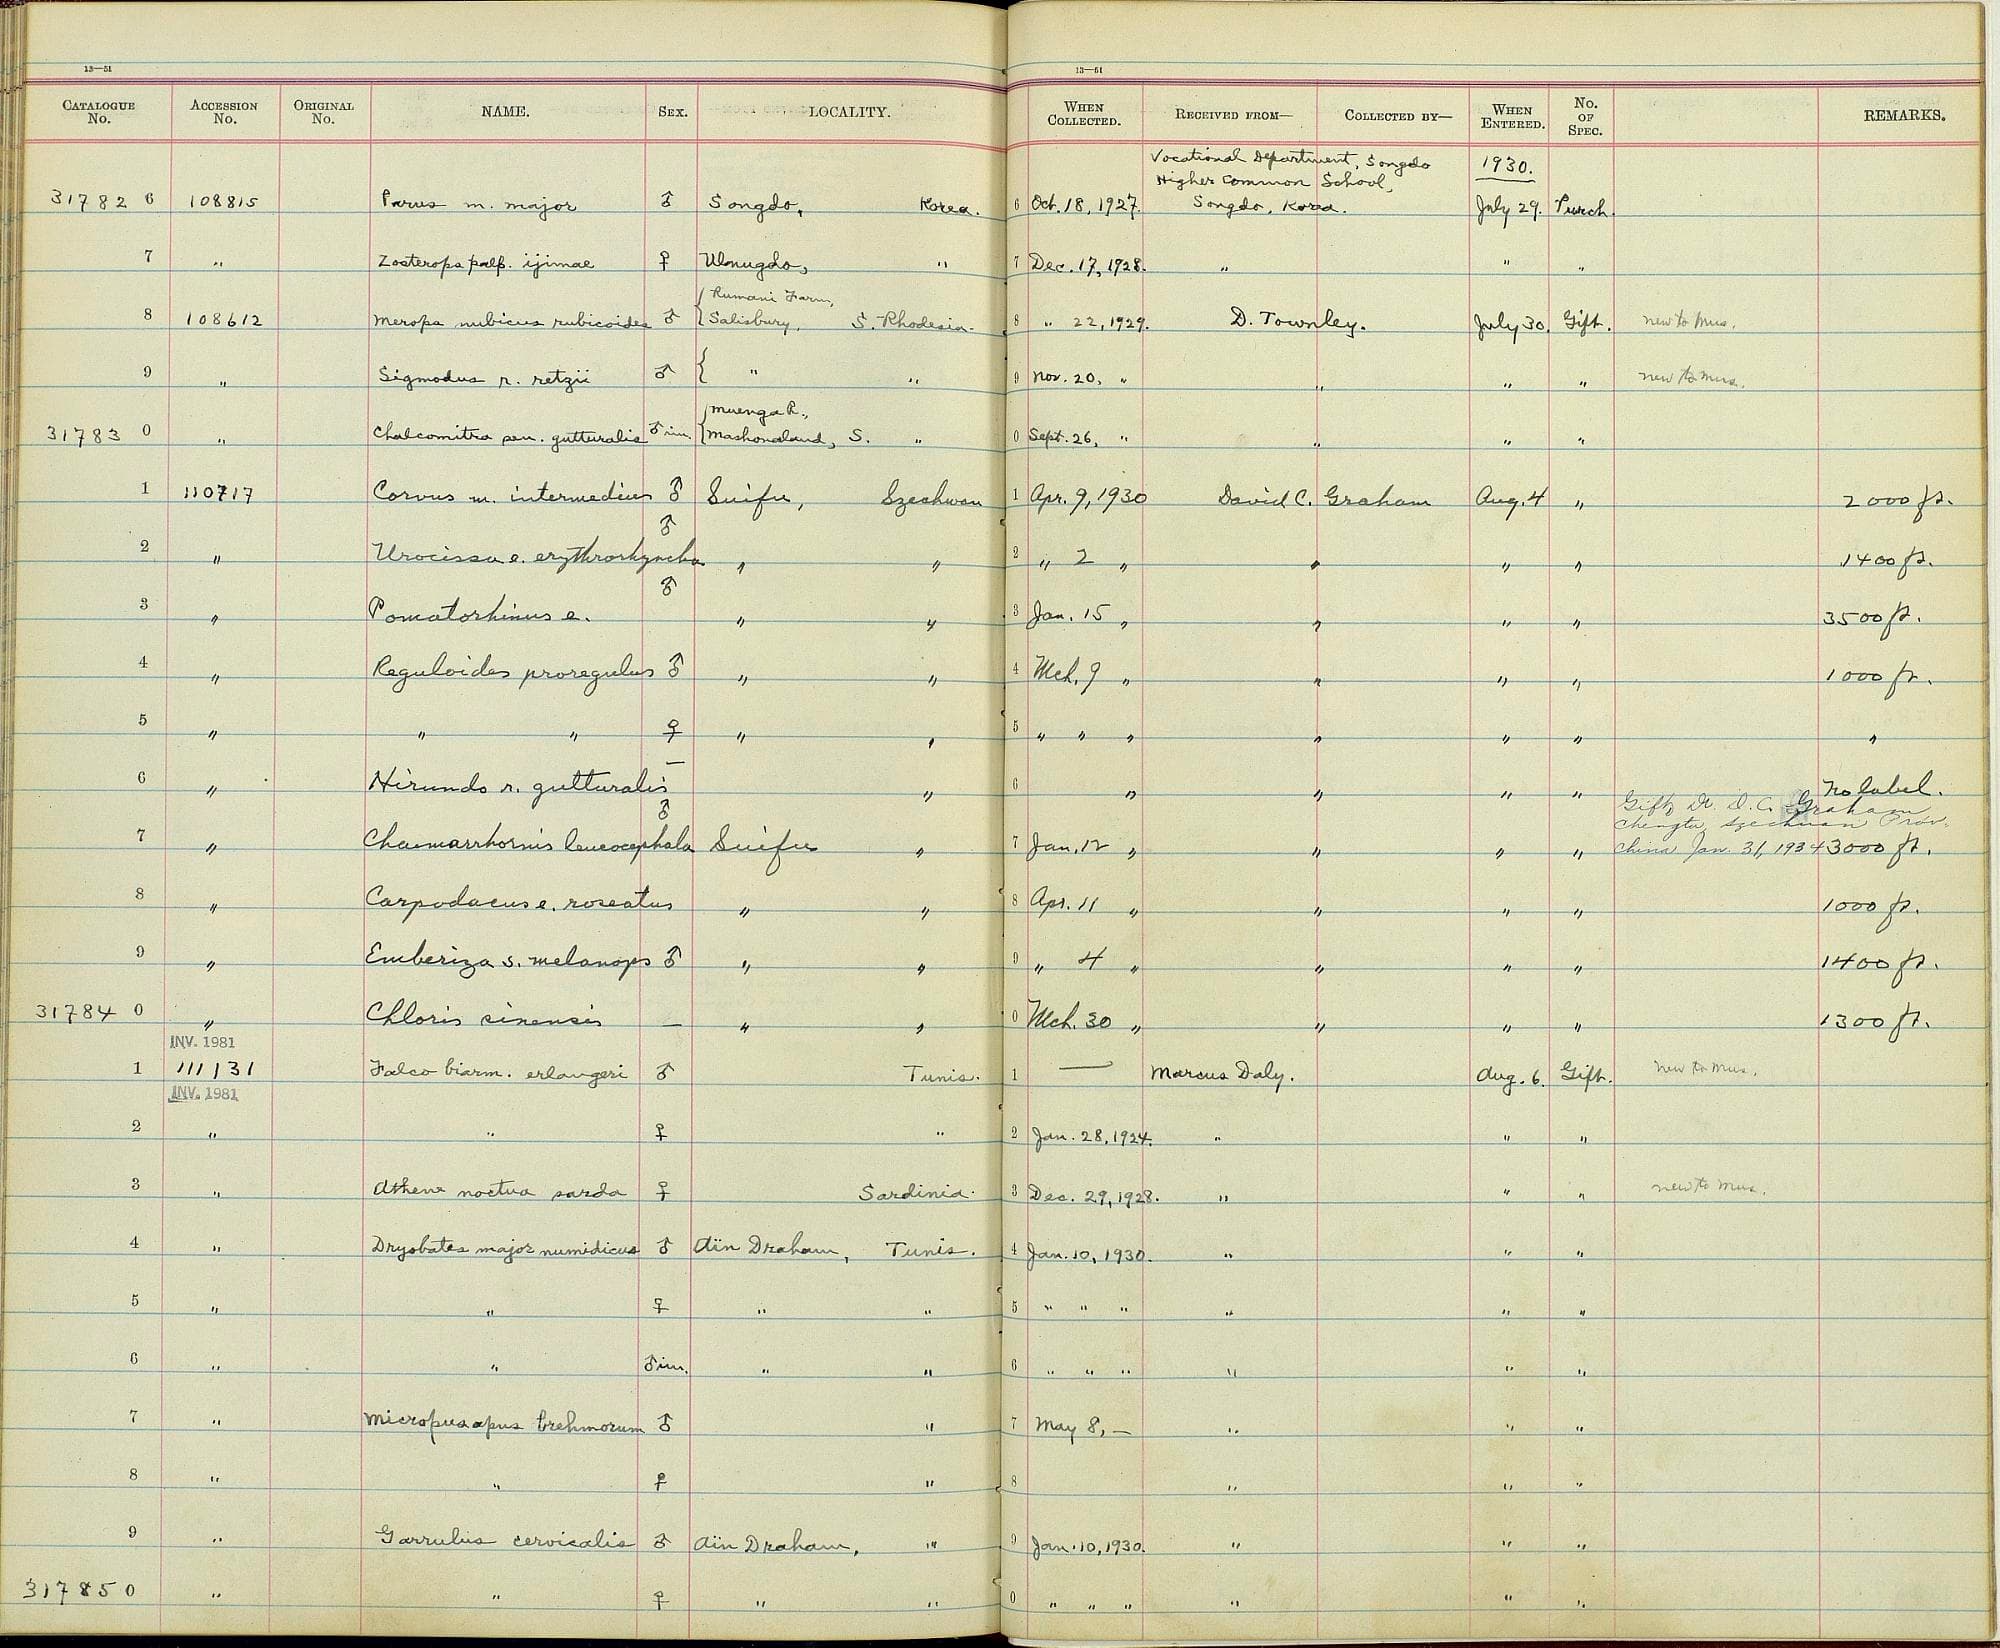 13—51
13—61
CATALOGUE No. ACCESSION No. ORIGINAL No. NAME. SEX. LOCALITY. WHEN COLLECTED. RECEIVED FROM— COLLECTED BY— WHEN ENTERED. No. OF SPEC. REMARKS.
Vocational Department, Songdo 1930.
Higher Common School,
31782 6 108815 Parus m. major ♂ Songdo, Korea. 6 Oct. 18, 1927. Songdo, Korea. July 29. Purch.
7 " Zosterops palp. ijimae ♀ " 7 Dec. 17, 1928. " " "
Rumani Farm,
8 108612 Merops nubicus nubicoides ♂ Salisbury, S. Rhodesia. 8 " 22, 1929. D. Townley. July 30. Gift. new to Mus.
9 " Sigmodus r. retzii ♂ " " 9 Nov. 20, " " " " new to Mus.
Muenga R.,
31783 0 " Chalcomitra sen. gutturalis ♂ im. Mashonaland, S. " 0 Sept. 26, " " " "
1 110717 Corvus m. intermedius ♂ Suifu, Szechwan 1 Apr. 9, 1930 David C. Graham Aug. 4 " 2000 ft.
2 " Urocissa e. erythrorhyncha ♂ " " 2 " 2 " " " " 1400 ft.
3 " Pomatorhinus e. ♂ " " 3 Jan. 15 " " " " 3500 ft.
4 " Reguloides proregulus ♂ " " 4 Mch. 9 " " " " 1000 ft.
5 " " " ♀ " " 5 " " " " " " "
6 " Hirundo r. gutturalis — " 6 " " " " No label.
Gift, Dr. D. C. Graham
Chengtu, Szechuan Prov.
7 " Chaemarrhornis leucocephala ♂ Suifu " 7 Jan. 12 " " " " China Jan. 31, 1934 3000 ft.
8 " Carpodacus e. roseatus " " 8 Apr. 11 " " " " 1000 ft.
9 " Emberiza s. melanops ♂ " " 9 " 4 " " " " 1400 ft.
31784 0 " Chloris sinensis — " " 0 Mch. 30 " " " " 1300 ft.
INV. 1981
1 111131 Falco biarm. erlangeri ♂ Tunis. 1 — Marcus Daly. Aug. 6. Gift. new to Mus.
INV. 1981
2 " " ♀ " 2 Jan. 28, 1924. " " "
3 " Athene noctua sarda ♀ Sardinia. 3 Dec. 29, 1928. " " " new to Mus.
4 " Dryobates major numidicus ♂ Aïn Draham, Tunis. 4 Jan. 10, 1930. " " "
5 " " ♀ " " 5 " " " " " "
6 " " ♂ im. " " 6 " " " " " "
7 " Micropus apus brehmorum ♂ " 7 May 8, — " " "
8 " " ♀ " 8 " " "
9 " Garrulus cervicalis ♂ Aïn Draham, " 9 Jan. 10, 1930. " " "
31785 0 " " ♀ " " 0 " " " " " "